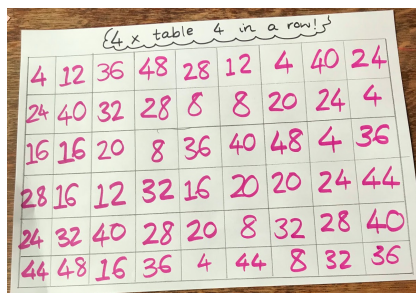 4 x table 4 in a row!
4 12 36 48 28 12 4 40 24
24 40 32 28 8 8 20 24 4
16 16 20 8 36 40 48 4 36
28 16 12 32 16 20 20 24 44
24 32 40 28 20 8 32 28 40
44 48 16 36 4 44 8 32 36